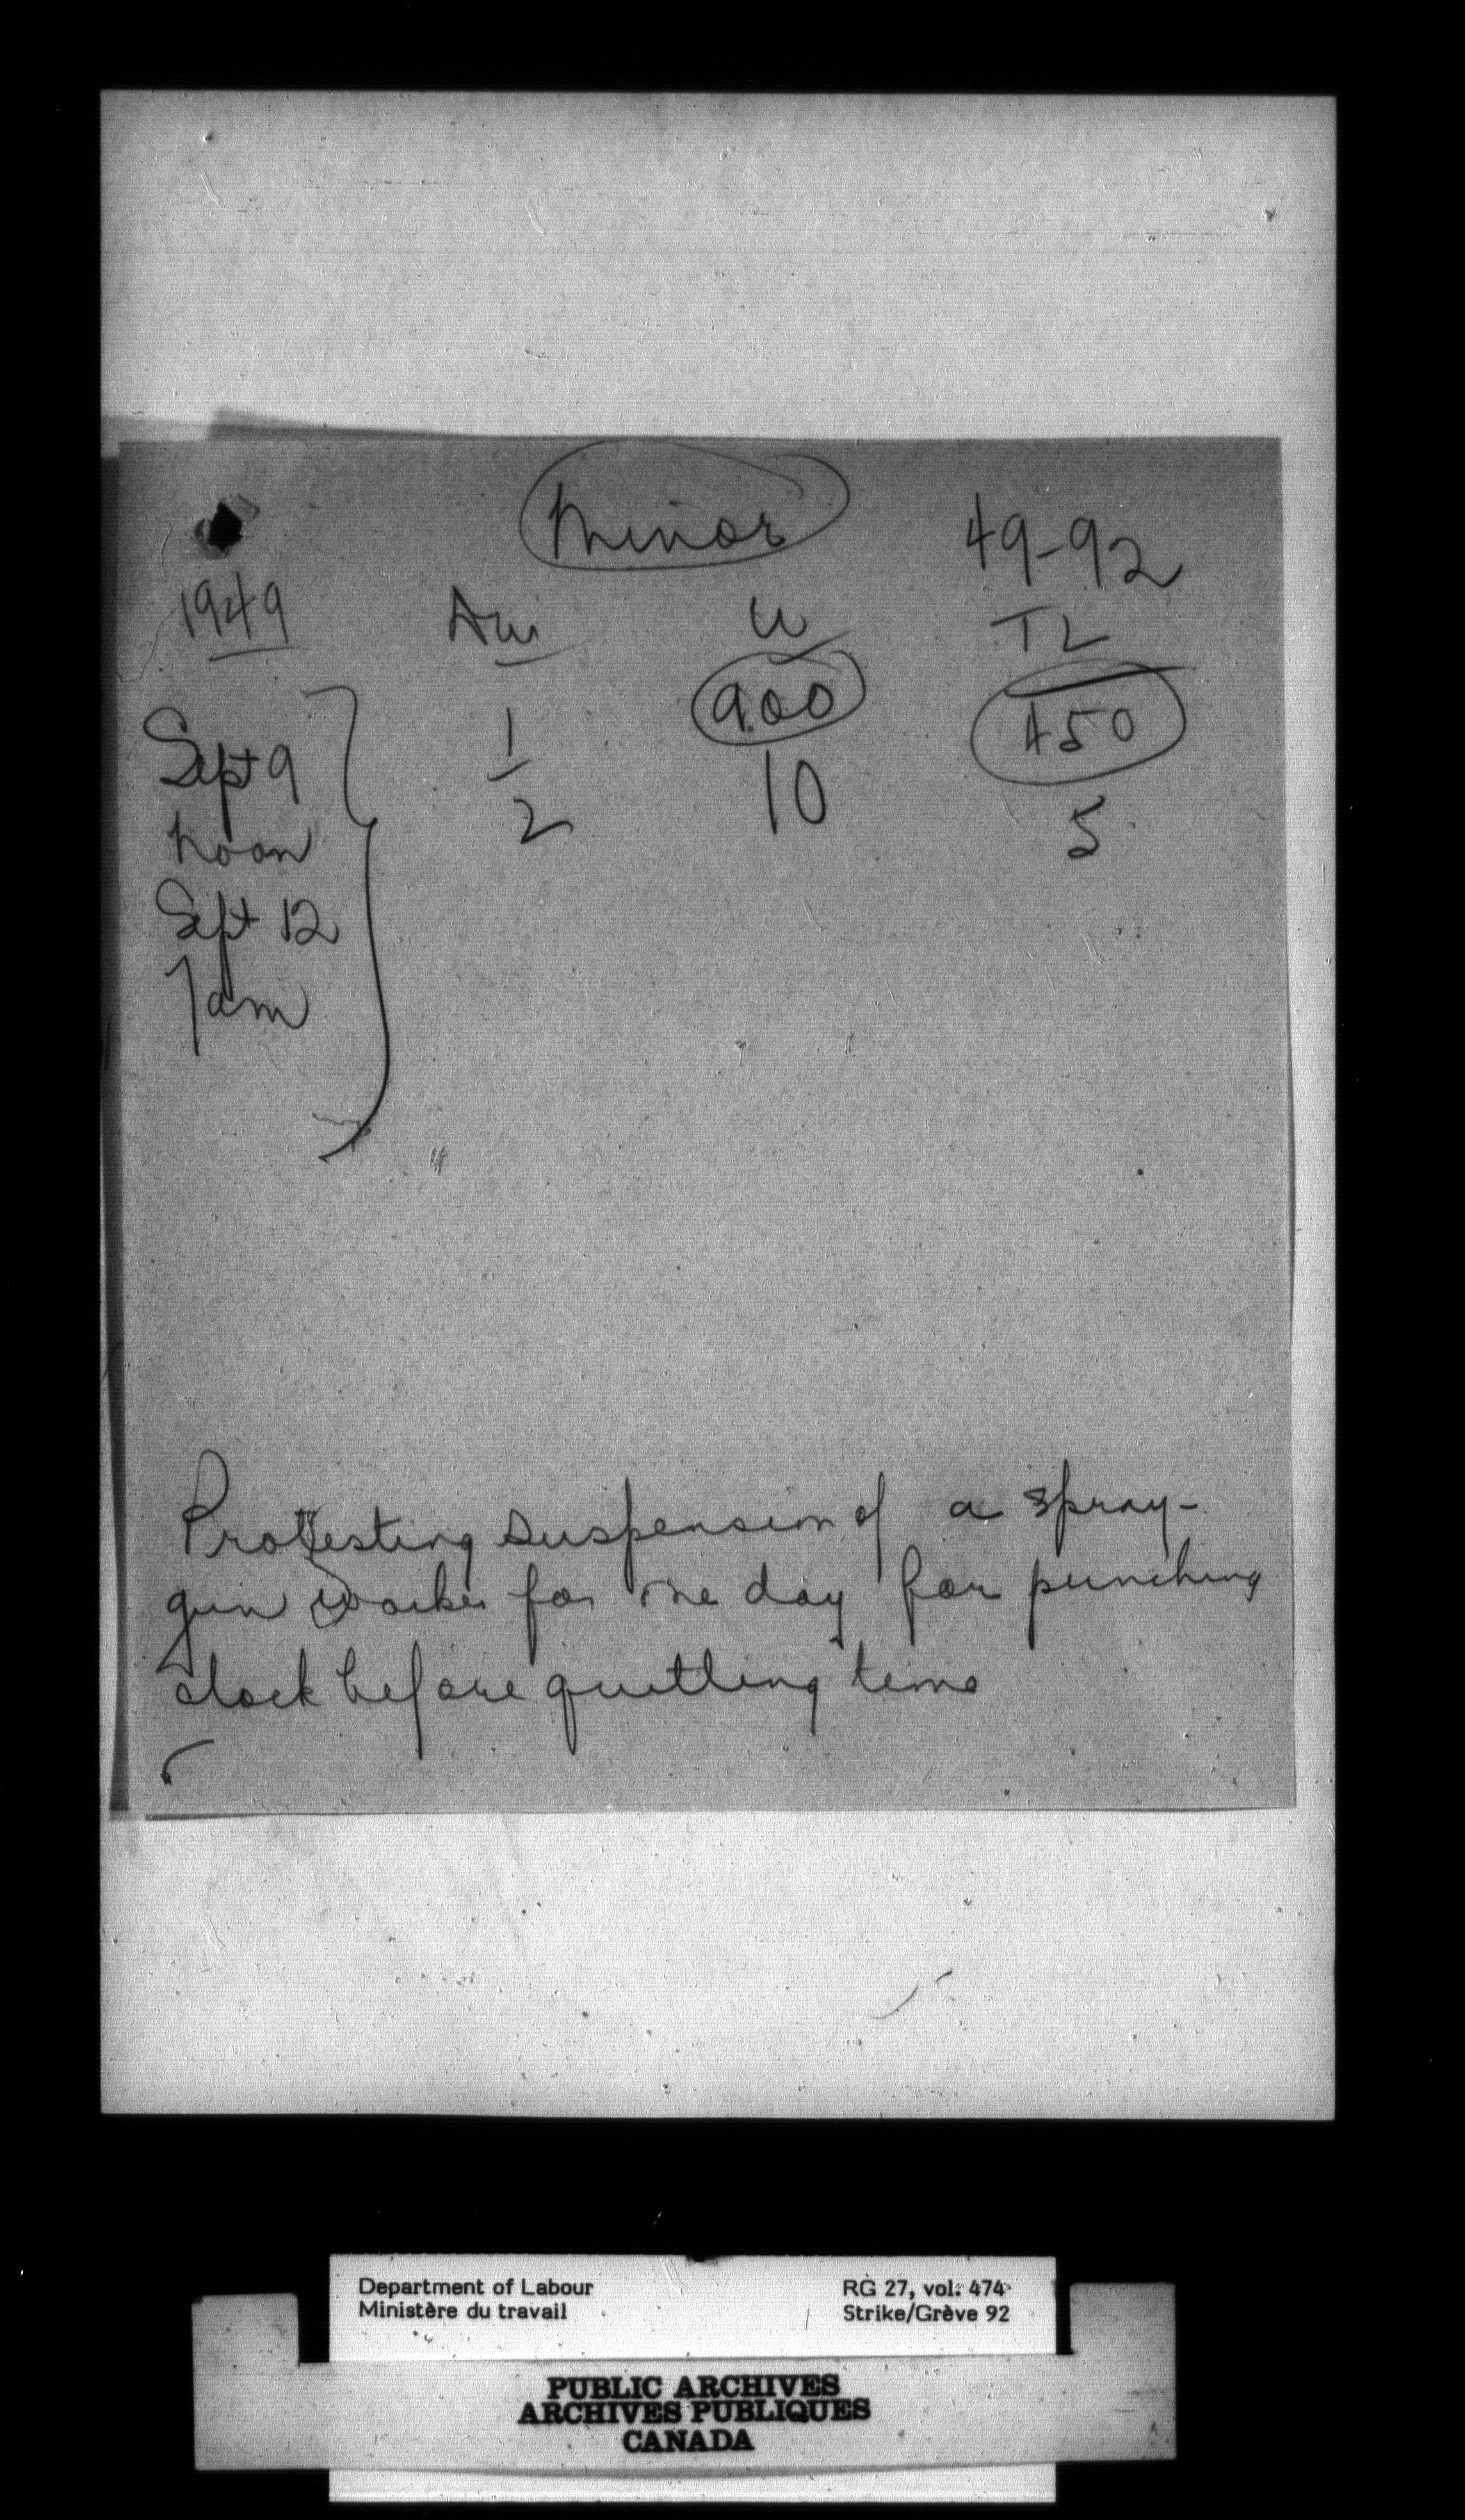 Minor
49-92
1949 Dw W TL
Sept 9 1/2 900 450
noon 10 5
Sept 12
7am
Protesting suspension of a spray-
gun worker for one day for punching
clock before quitting time
Department of Labour RG 27, vol. 474
Ministère du travail Strike/Grève 92
PUBLIC ARCHIVES
ARCHIVES PUBLIQUES
CANADA